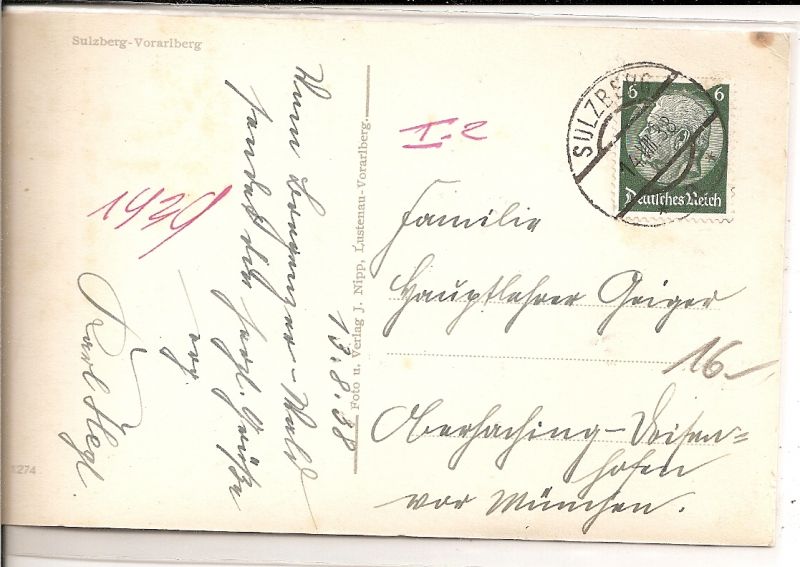 Sulzberg-Vorarlberg
Vom Bregenzer-Wald
sendet die herzl. Grüße
Karl Hegl.
13.8.38
1939
1274
Foto u. Verlag J. Nipp, Lustenau-Vorarlberg.
I-2
SULZBERG
6 6
Deutsches Reich
Familie
Hauptlehrer Geiger
16.-
Oberhaching-Deisen=
hofen
vor München.